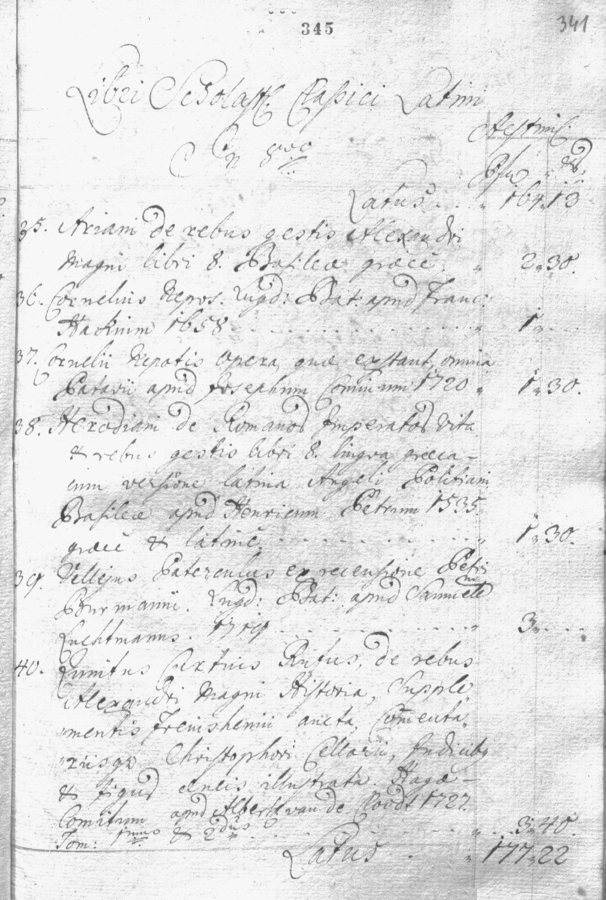 345
341
Libri Scholast. Classici Latini
Aestim:
In 8vo
Latus . . " 164 " 13
35. Ariani de rebus gestis Alexandri
Magni libri 8. Basileæ græcè. " 2 " 30.
36. Cornelius Nepos. Lugd: Bat: apud Franc:
Hackium 1658 . . . . . " 1 " . .
37. Cornelii Nepotis opera, quæ extant, omnia
Patavii apud Josephum Cominum 1720 " 1 " 30.
38. Herodiani de Romanor Imperator vita
& rebus gestis libri 8. lingva græca
cum versione latina Angeli Politiani
Basileæ apud Henricum Petrum 1535.
græcè & latinè . . . . . " 1 " 30.
39. Vellejus Paterculus ex recensione Petri
Burmanni. Lugd: Bat: apud Samuele
Luchtmanns. 1719 . . . . . " 3 " . .
40. Quintus Curtius Rufus, de rebus
Alexandri Magni Historia, Supple
mentis Freinshemii aucta, Comenta
riisq Christophori Cellarii, Indicibq
& figuris æneis illustrata. Hagæ-
Comitum apud Albert van de 1727.
Tom: 1mus & 2dus . . . " 3 " 40.
Latus . . " 177 " 22